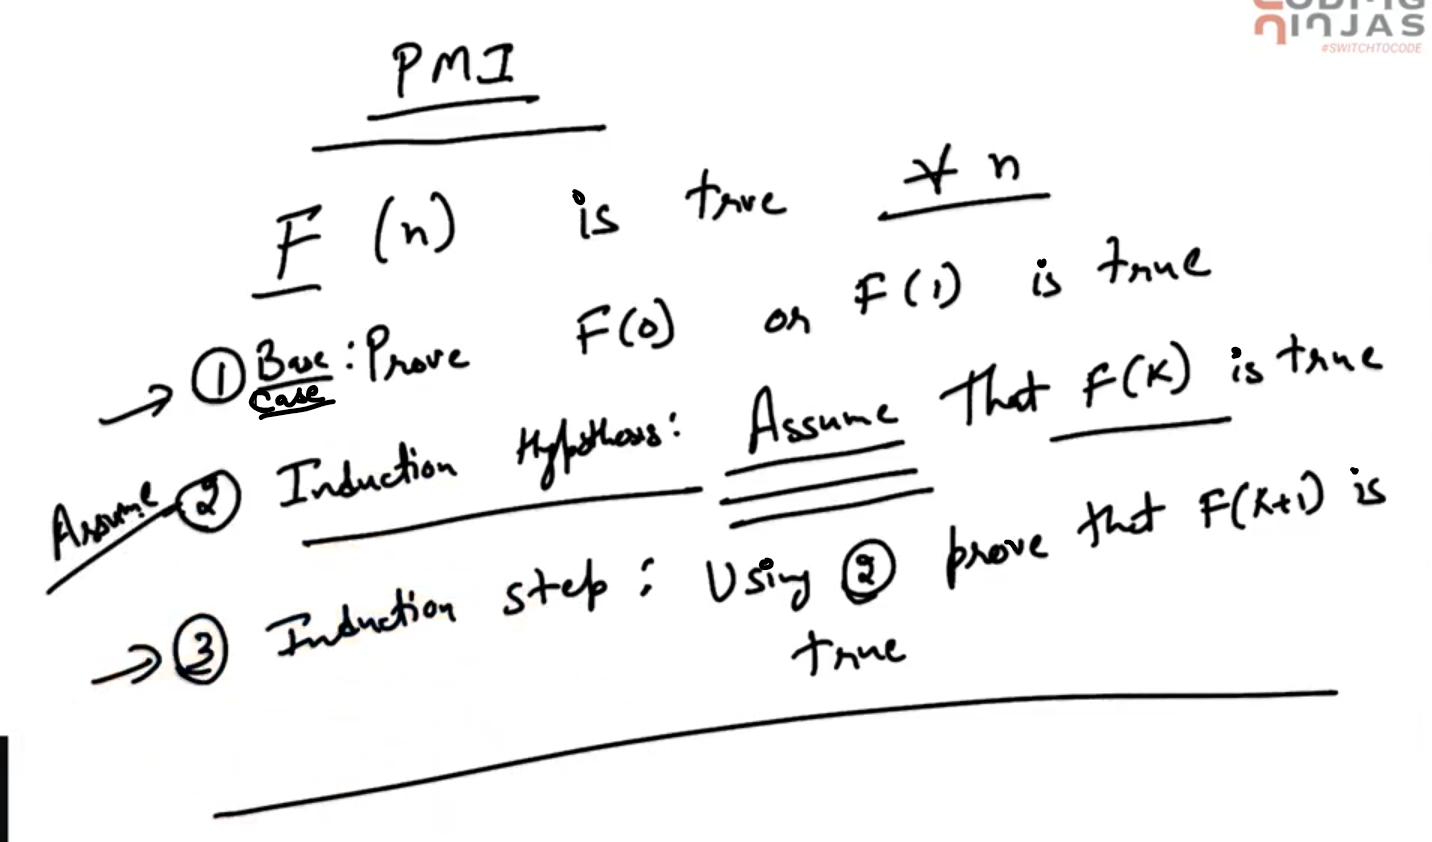 CODING
NINJAS
#SWITCHTOCODE
PMI
F (n) is true ∀ n
① Base : Prove F(0) or F(1) is true
Case
Assume ② Induction Hypothesis: Assume that F(K) is true
③ Induction step : Using ② prove that F(K+1) is
true